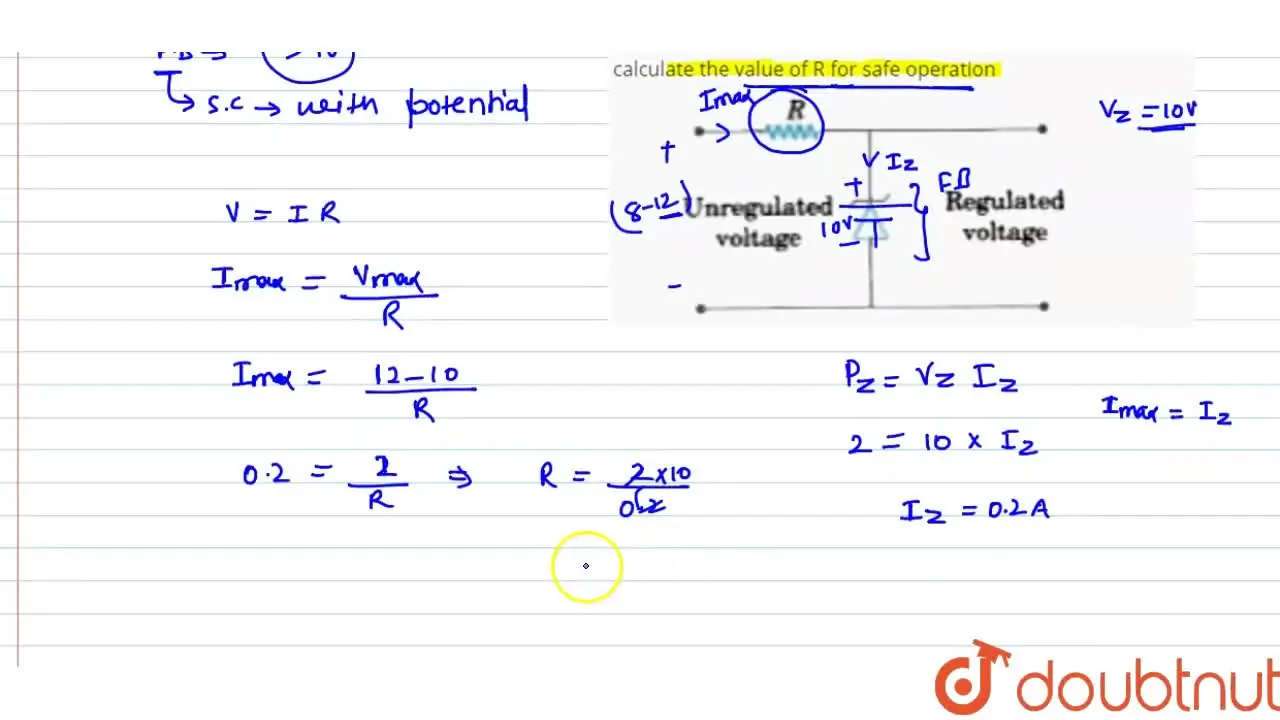 calculate the value of R for safe operation
s.c → with potential
Imax
R
Vz = 10V
+
V Iz
+
FB
(8-12)
Unregulated
voltage
10V
Regulated
voltage
-
V = I R
Imax = Vmax / R
Imax = 12-10 / R
0.2 = 2 / R ⇒ R = 2×10 / 0.2
Pz = Vz Iz
Imax = Iz
2 = 10 × Iz
Iz = 0.2A
doubtnut